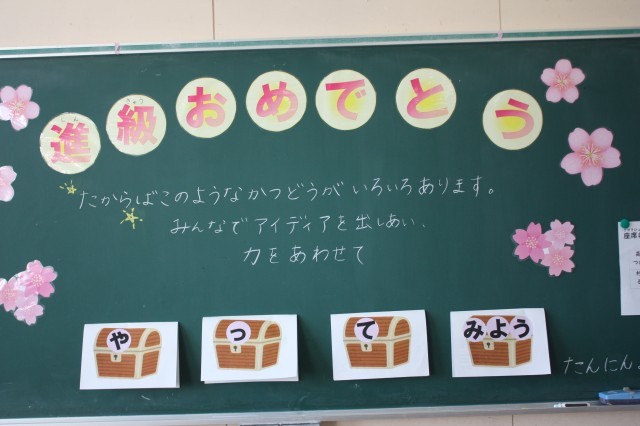 進級おめでとう
たからばこのようなかつどうがいろいろあります。
みんなでアイディアを出しあい、
力をあわせて
やってみよう
たんにん
座席